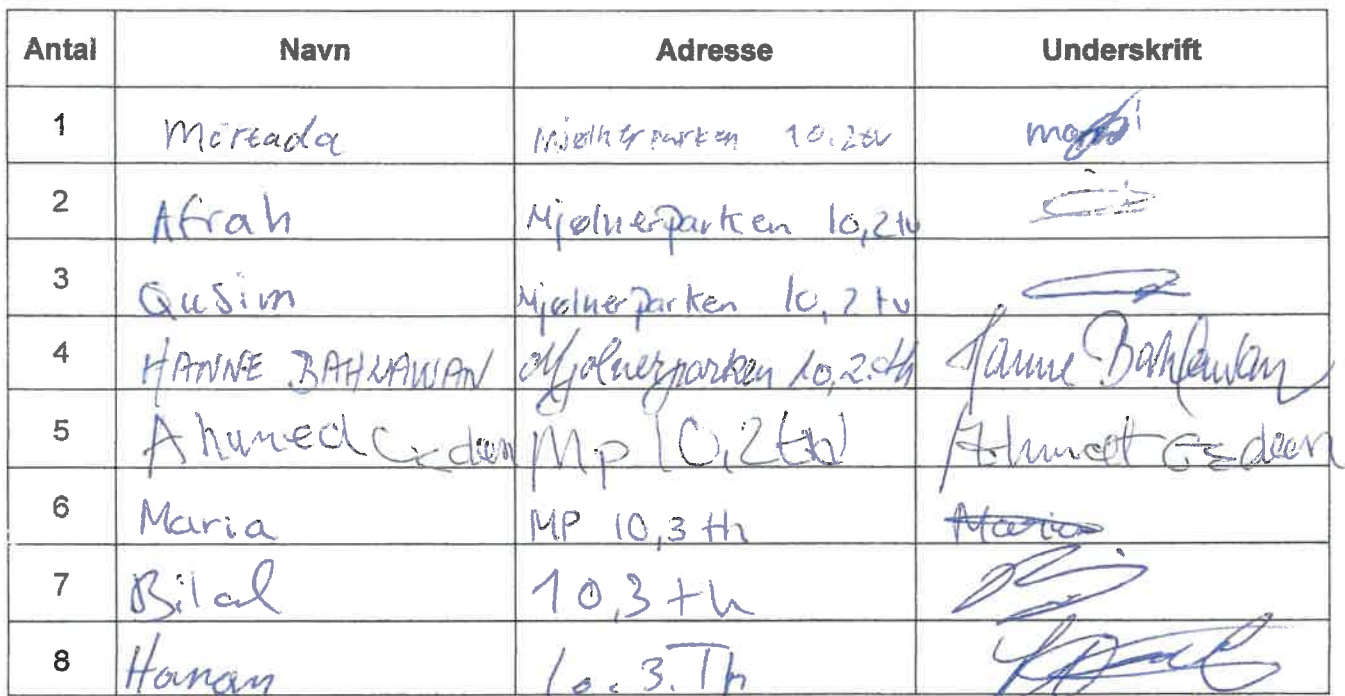 Antal Navn Adresse Underskrift
1 Mortada Mjølnerparken 10.2tv
2 Afrah Mjølnerparken 10,2tv
3 Qusim Mjølnerparken 10,2tv
4 HANNE BAHLAWAN Mjølnerparken 10,2.th Hanne Bahlawan
5 Ahmed Mp 10,2tv
6 Maria MP 10,3 th Maria
7 Bilal 10,3th
8 Hanan 10.3.Th